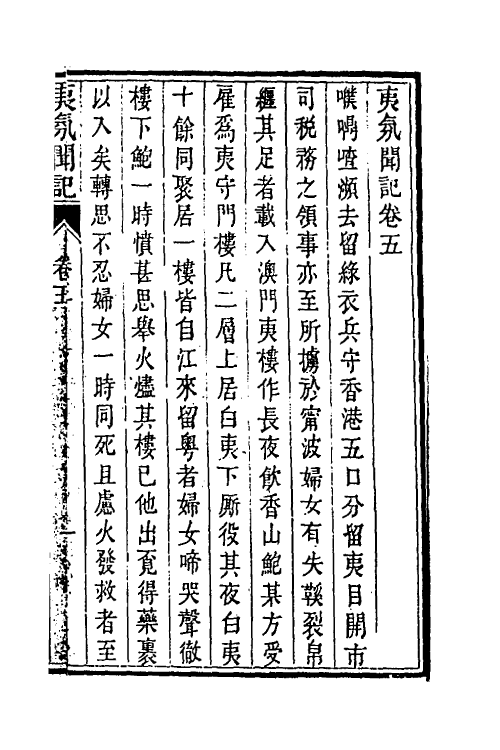 夷氛聞記卷五
噗嘚喳瀕去留綠衣兵守香港五口分留夷目開市
司稅務之領事亦至所擄於甯波婦女有失鞵裂帛
纏其足者載入澳門夷樓作長夜飲香山鮑某方受
雇爲夷守門樓凡二層上居白夷下厮役其夜白夷
十餘同聚居一樓皆自江來留粵者婦女啼哭聲徹
樓下鮑一時憤甚思舉火燼其樓已他出覔得藥裹
以入矣轉思不忍婦女一時同死且慮火發救者至
夷氛聞記
卷五
一